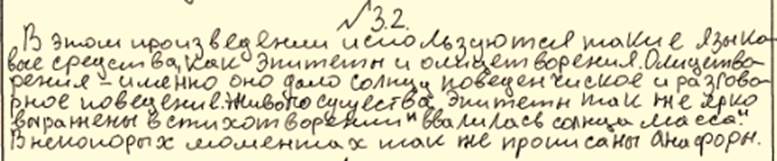 №3.2.
В этом произведении используются такие языко-
вые средства, как эпитеты и олицетворения. Олицетво-
рения – именно оно дало солнцу поведенчиское и разгово-
рное поведение живого существа. Эпитеты так же ярко
выражены в стихотворении "ввалилась солнца масса"
В некоторых моментах так же прописаны анафоры.